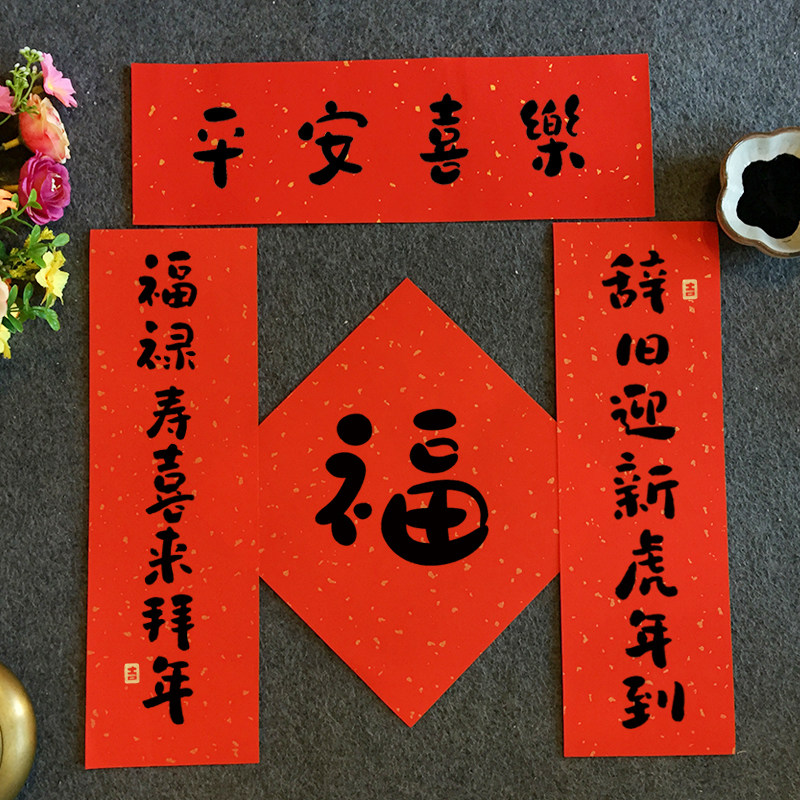 平安喜樂
辞旧迎新虎年到
吉
福禄寿喜来拜年
吉
福